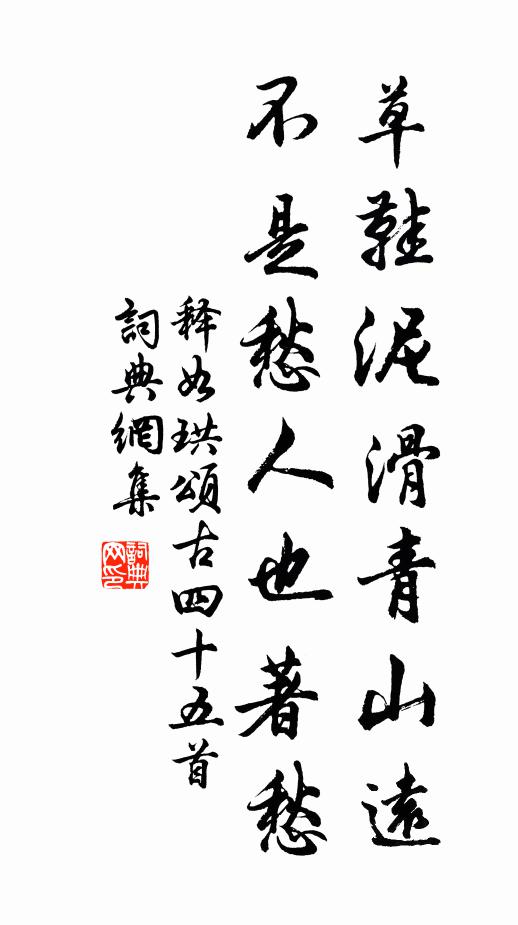 草鞋泥滑青山遠
不是愁人也著愁
释如珙頌古四十五首
詞典網集
詞典网印